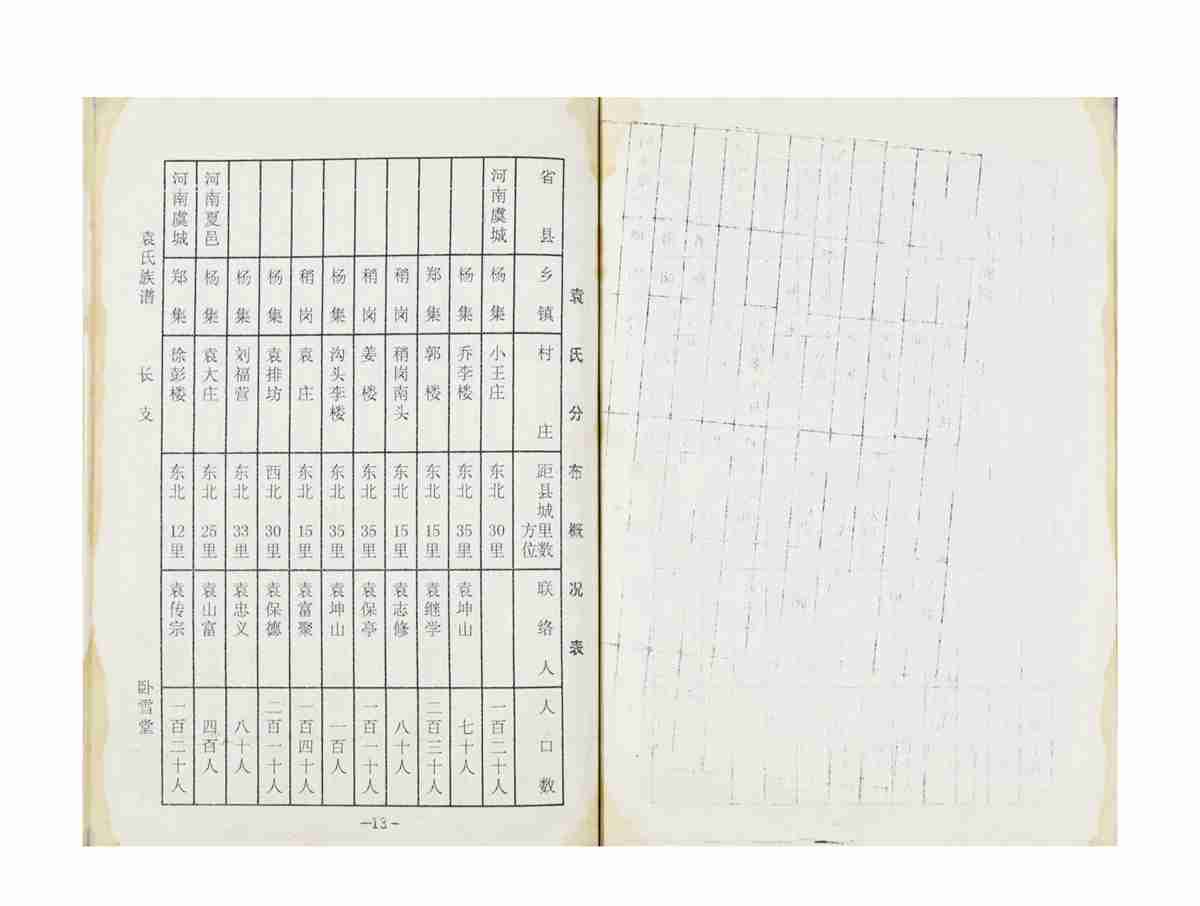 袁氏分布概况表
省县 乡镇 村庄 距县城里数方位 联络人 人口数
河南虞城 杨集 小王庄 东北30里 一百二十人
杨集 乔李楼 东北35里 袁坤山 七十人
郑集 郭楼 东北15里 袁继学 二百三十人
稍岗 稍岗南头 东北15里 袁志修 八十人
稍岗 姜楼 东北35里 袁保亭 一百一十人
杨集 沟头李楼 东北35里 袁坤山 一百人
稍岗 袁庄 东北15里 袁富聚 一百四十人
杨集 袁排坊 西北30里 袁保德 二百一十人
杨集 刘福营 东北33里 袁忠义 八十人
河南夏邑 杨集 袁大庄 东北25里 袁山富 四百人
河南虞城 郑集 徐彭楼 东北12里 袁传宗 一百二十人
袁氏族谱 长支 卧雪堂
—13—